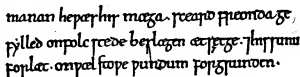 manan heƿæs his mæga. sceard freonda ge,
fylled onfolc stede beslægen ætsecge. ⁊hissunu
forlæt. onƿæl stoƿe ƿundum forgrunden.